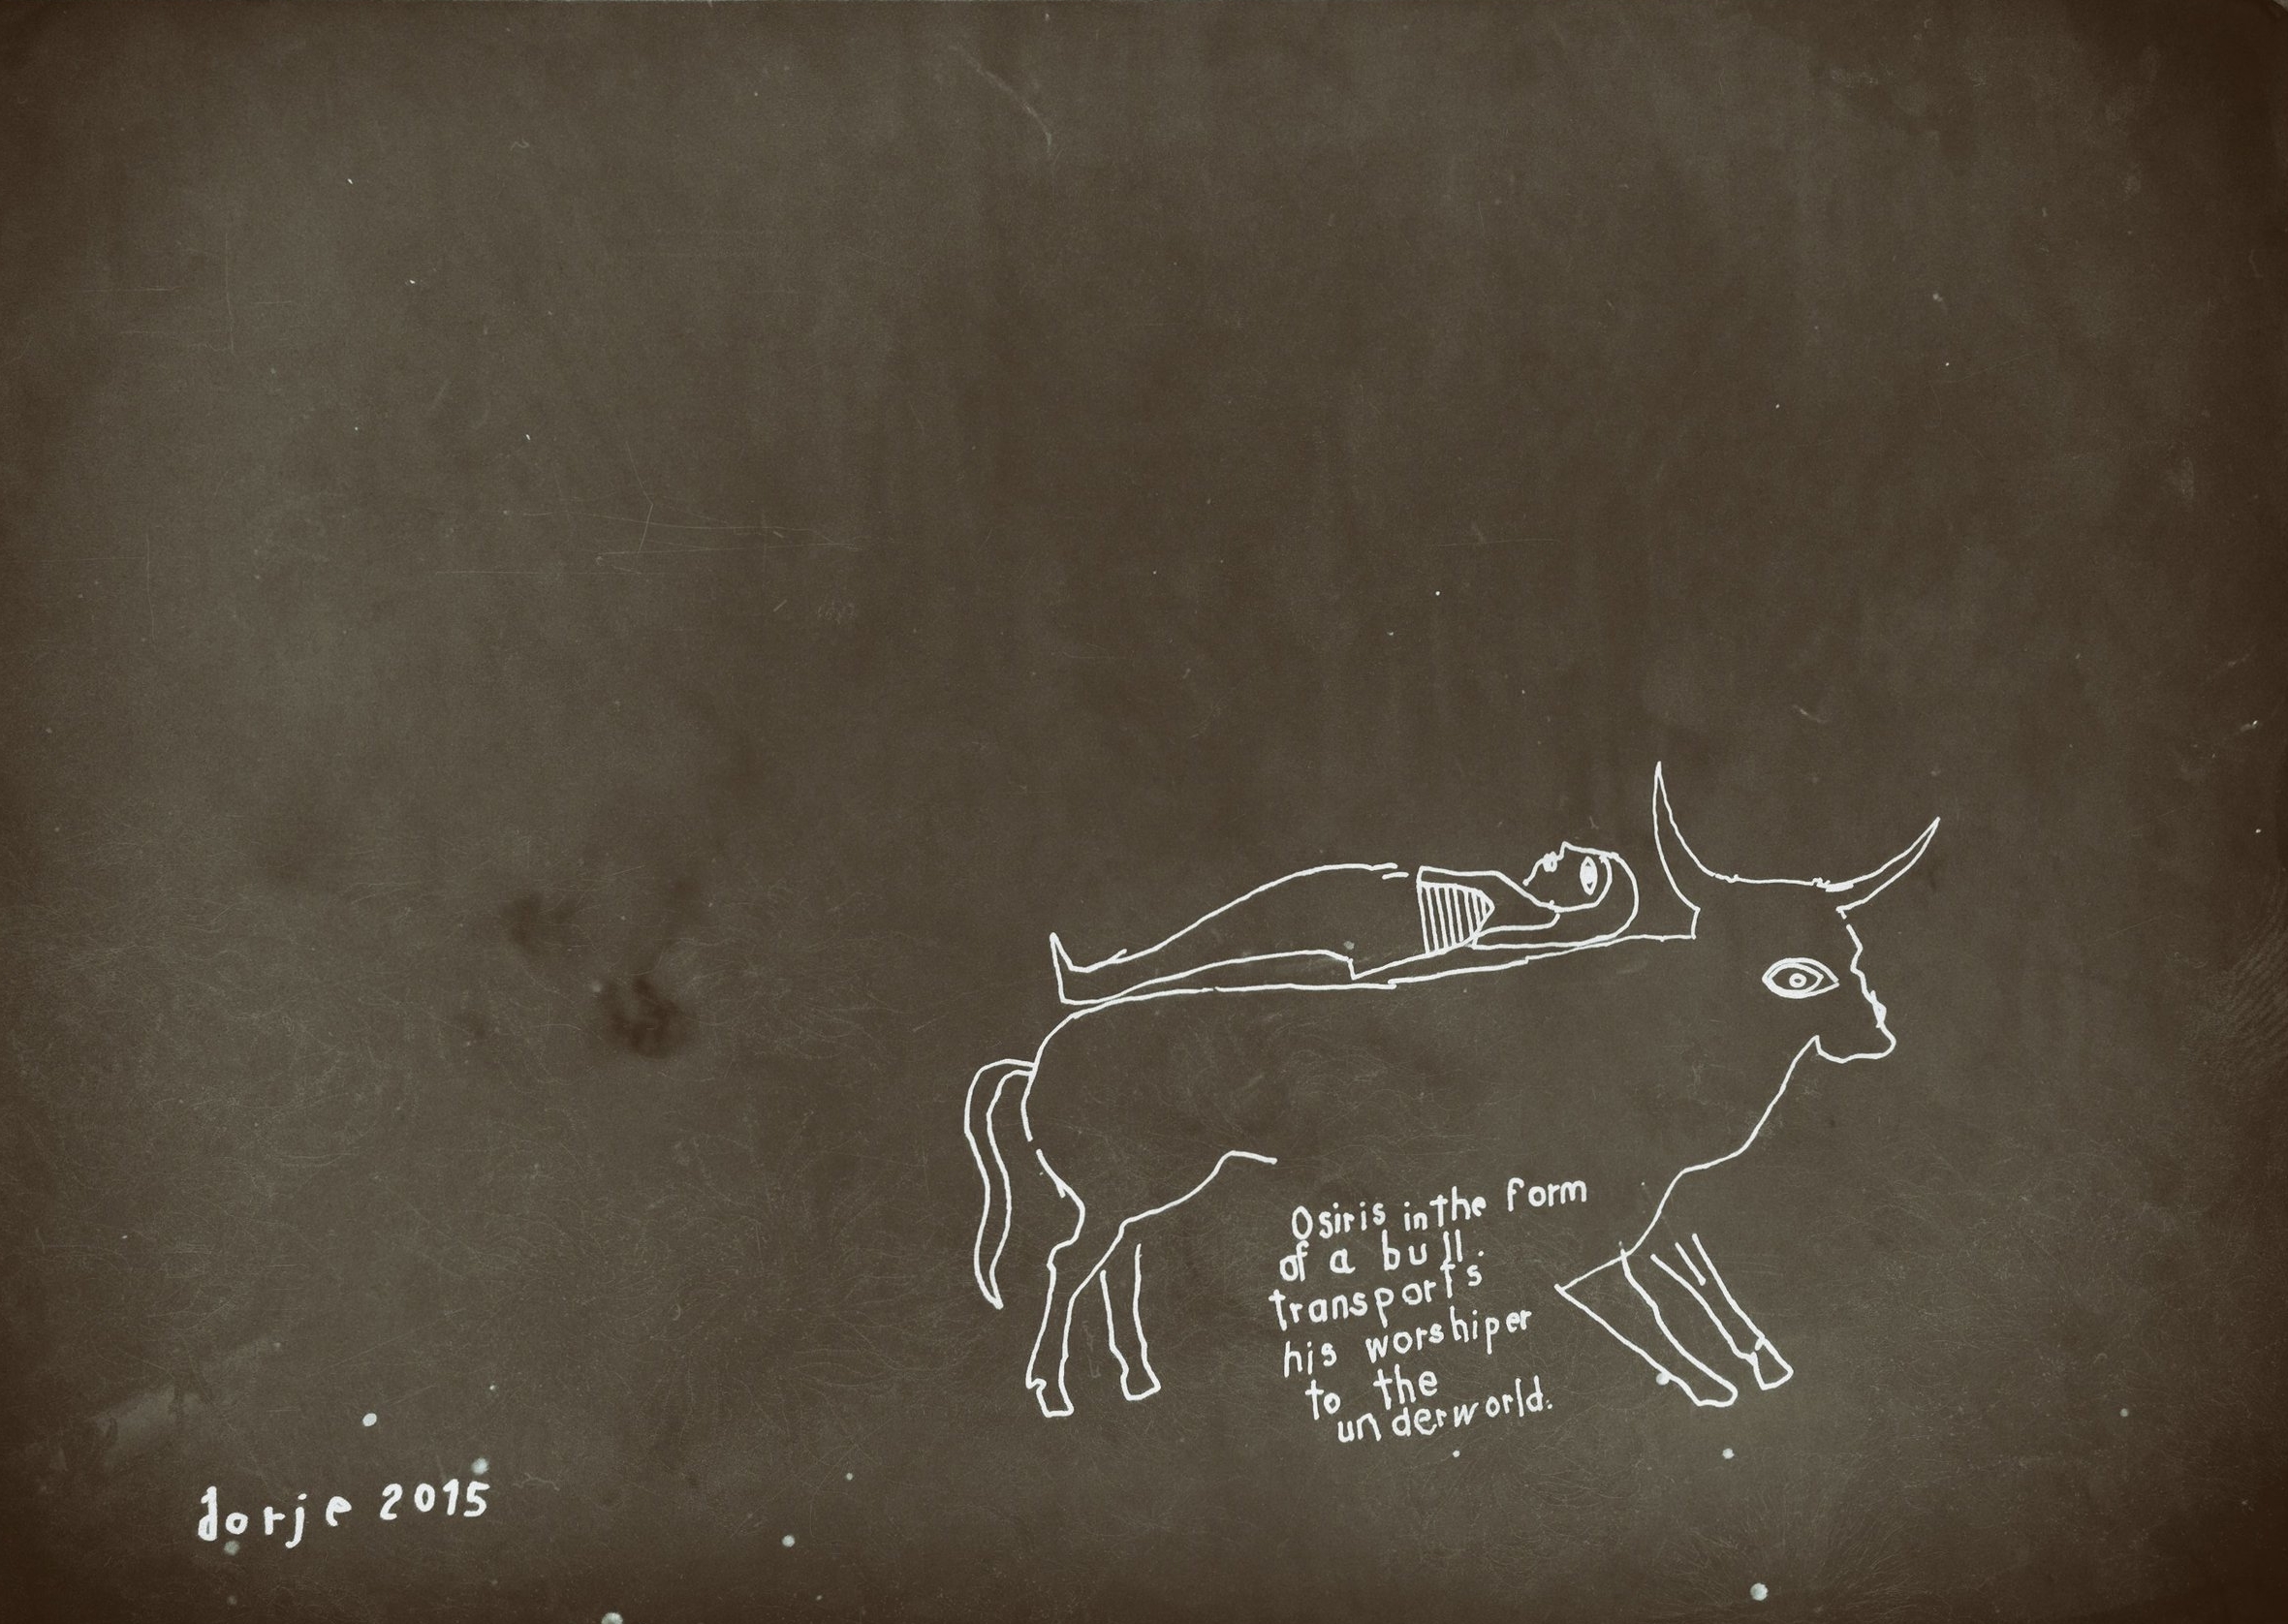 Osiris in the form
of a bull.
transports
his worshiper
to the
underworld.
dorje 2015